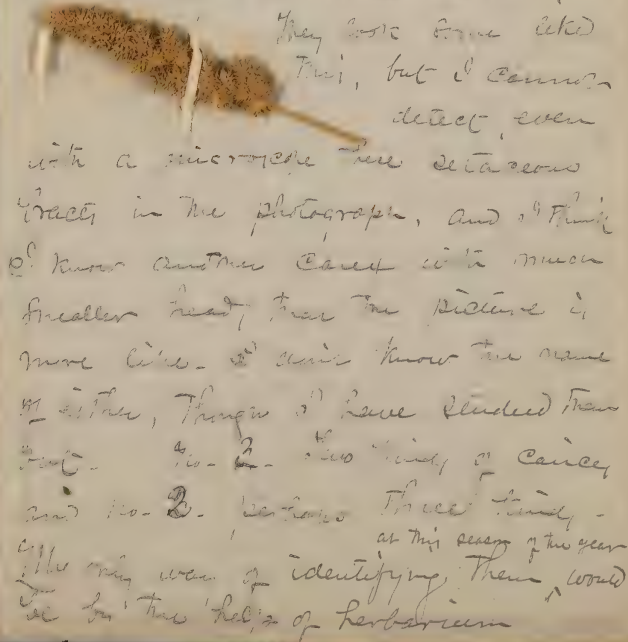 They look some like
this, but I cannot
detect, even
with a microscope these setaceous
bracts in the photograph, and I think
I know another Carex with much
smaller head, that the picture is
more like. I dont know the name
of either, though I have studied them
out. No. 2. two kinds of Carices,
and no. 3. perhaps three kinds.
at this season of the year
The only way of identifying them, would
be by the help of herbarium